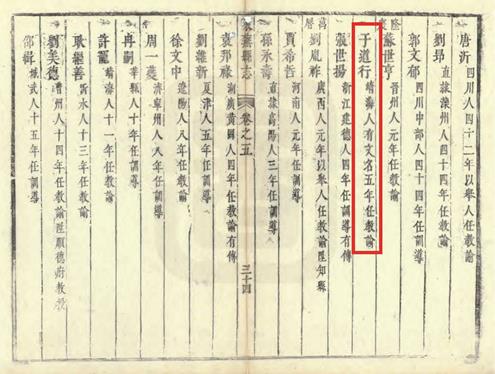 唐沂 四川人四十二年以舉人任教諭
劉昂 直隸灤州人四十四年任教諭
郭文郁 四川中部人四十四年任訓導
隆慶 蘇世亨 晉州人元年任教諭
于道行 靖海人有文名五年任教諭
張世揚 浙江建德人四年任訓導有傳
萬曆 劉胤祚 廣西人元年以舉人任教諭陞知縣
賈希哲 河南人元年任訓導
孫永壽 直隸高陽人三年任訓導
縣志 卷之五 三十四
袁邦祿 湖廣黃岡人四年任教諭有傳
劉維新 夏津人五年任訓導
徐文中 遼陽人八年任訓導
周一 濟寧州人八年任教諭
冉嗣 縣人十年任訓導
許龍 靖海人十一年任訓導
耿繼善 沂水人十三年任教諭
劉美德 曹州人十四年任教諭陞順德府教授
邵緝 城武人十五年任訓導